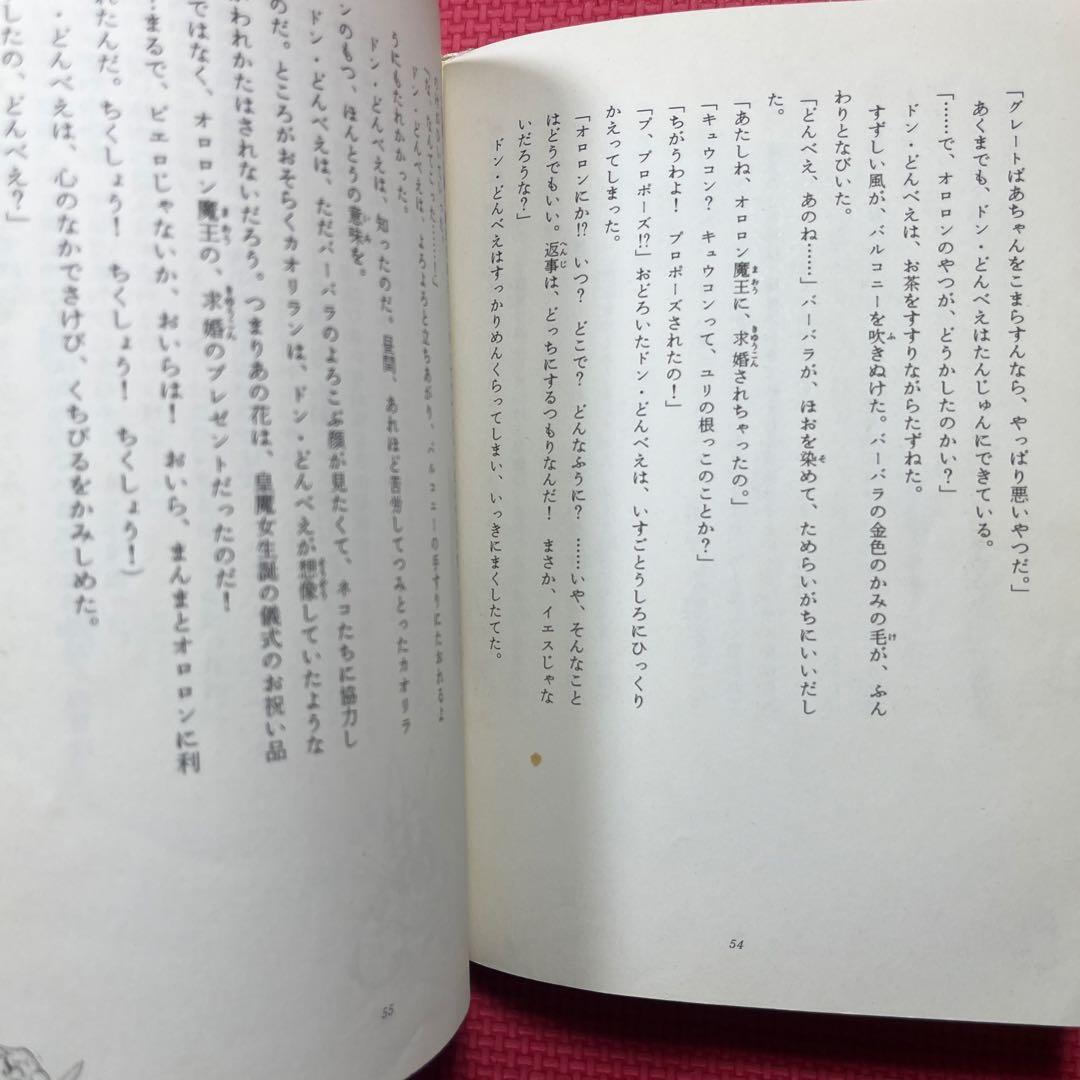 「グレートばあちゃんをこまらすんなら、やっぱり悪いやつだ。」
あくまでも、ドン・どんべえはたんじゅんにできている。
「……で、オロロンのやつが、どうかしたのかい？」
ドン・どんべえは、お茶をすすりながらたずねた。
すずしい風が、バルコニーを吹きぬけた。バーバラの金色のかみの毛が、ふん
わりとなびいた。
「どんべえ、あのね……」バーバラが、ほおを染めて、ためらいがちにいいだし
た。
「あたしね、オロロン魔王に、求婚されちゃったの。」
「キュウコン？　キュウコンって、ユリの根っこのことか？」
「ちがうわよ！　プロポーズされたの！」
「プ、プロポーズ!?」おどろいたドン・どんべえは、いすごとうしろにひっくり
かえってしまった。
「オロロンにか!?　いつ？　どこで？　どんなふうに？　……いや、そんなこと
はどうでもいい。返事は、どっちにするつもりなんだ！　まさか、イエスじゃな
いだろうな？」
ドン・どんべえはすっかりめんくらってしまい、いっきにまくしたてた。
54
「な、なんてこった……！」
ドン・どんべえは、よろよろと立ちあがり、バルコニーの手すりにたおれるよ
うにもたれかかった。
ドン・どんべえは、知ったのだ。昼間、あれほど苦労してつみとったカオリラ
ンのもつ、ほんとうの意味を。
のだ。ところがおそらくカオリランは、ドン・どんべえが想像していたような
ただバーバラのよろこぶ顔が見たくて、ネコたちに協力し
われかたはされないだろう。つまりあの花は、皇魔女生誕の儀式のお祝い品
ではなく、オロロン魔王の、求婚のプレゼントだったのだ！
まるで、ピエロじゃないか、おいらは！　おいら、まんまとオロロンに利
れたんだ。ちくしょう！　ちくしょう！　ちくしょう！）
・どんべえは、心のなかでさけび、くちびるをかみしめた。
したの、どんべえ？」
55